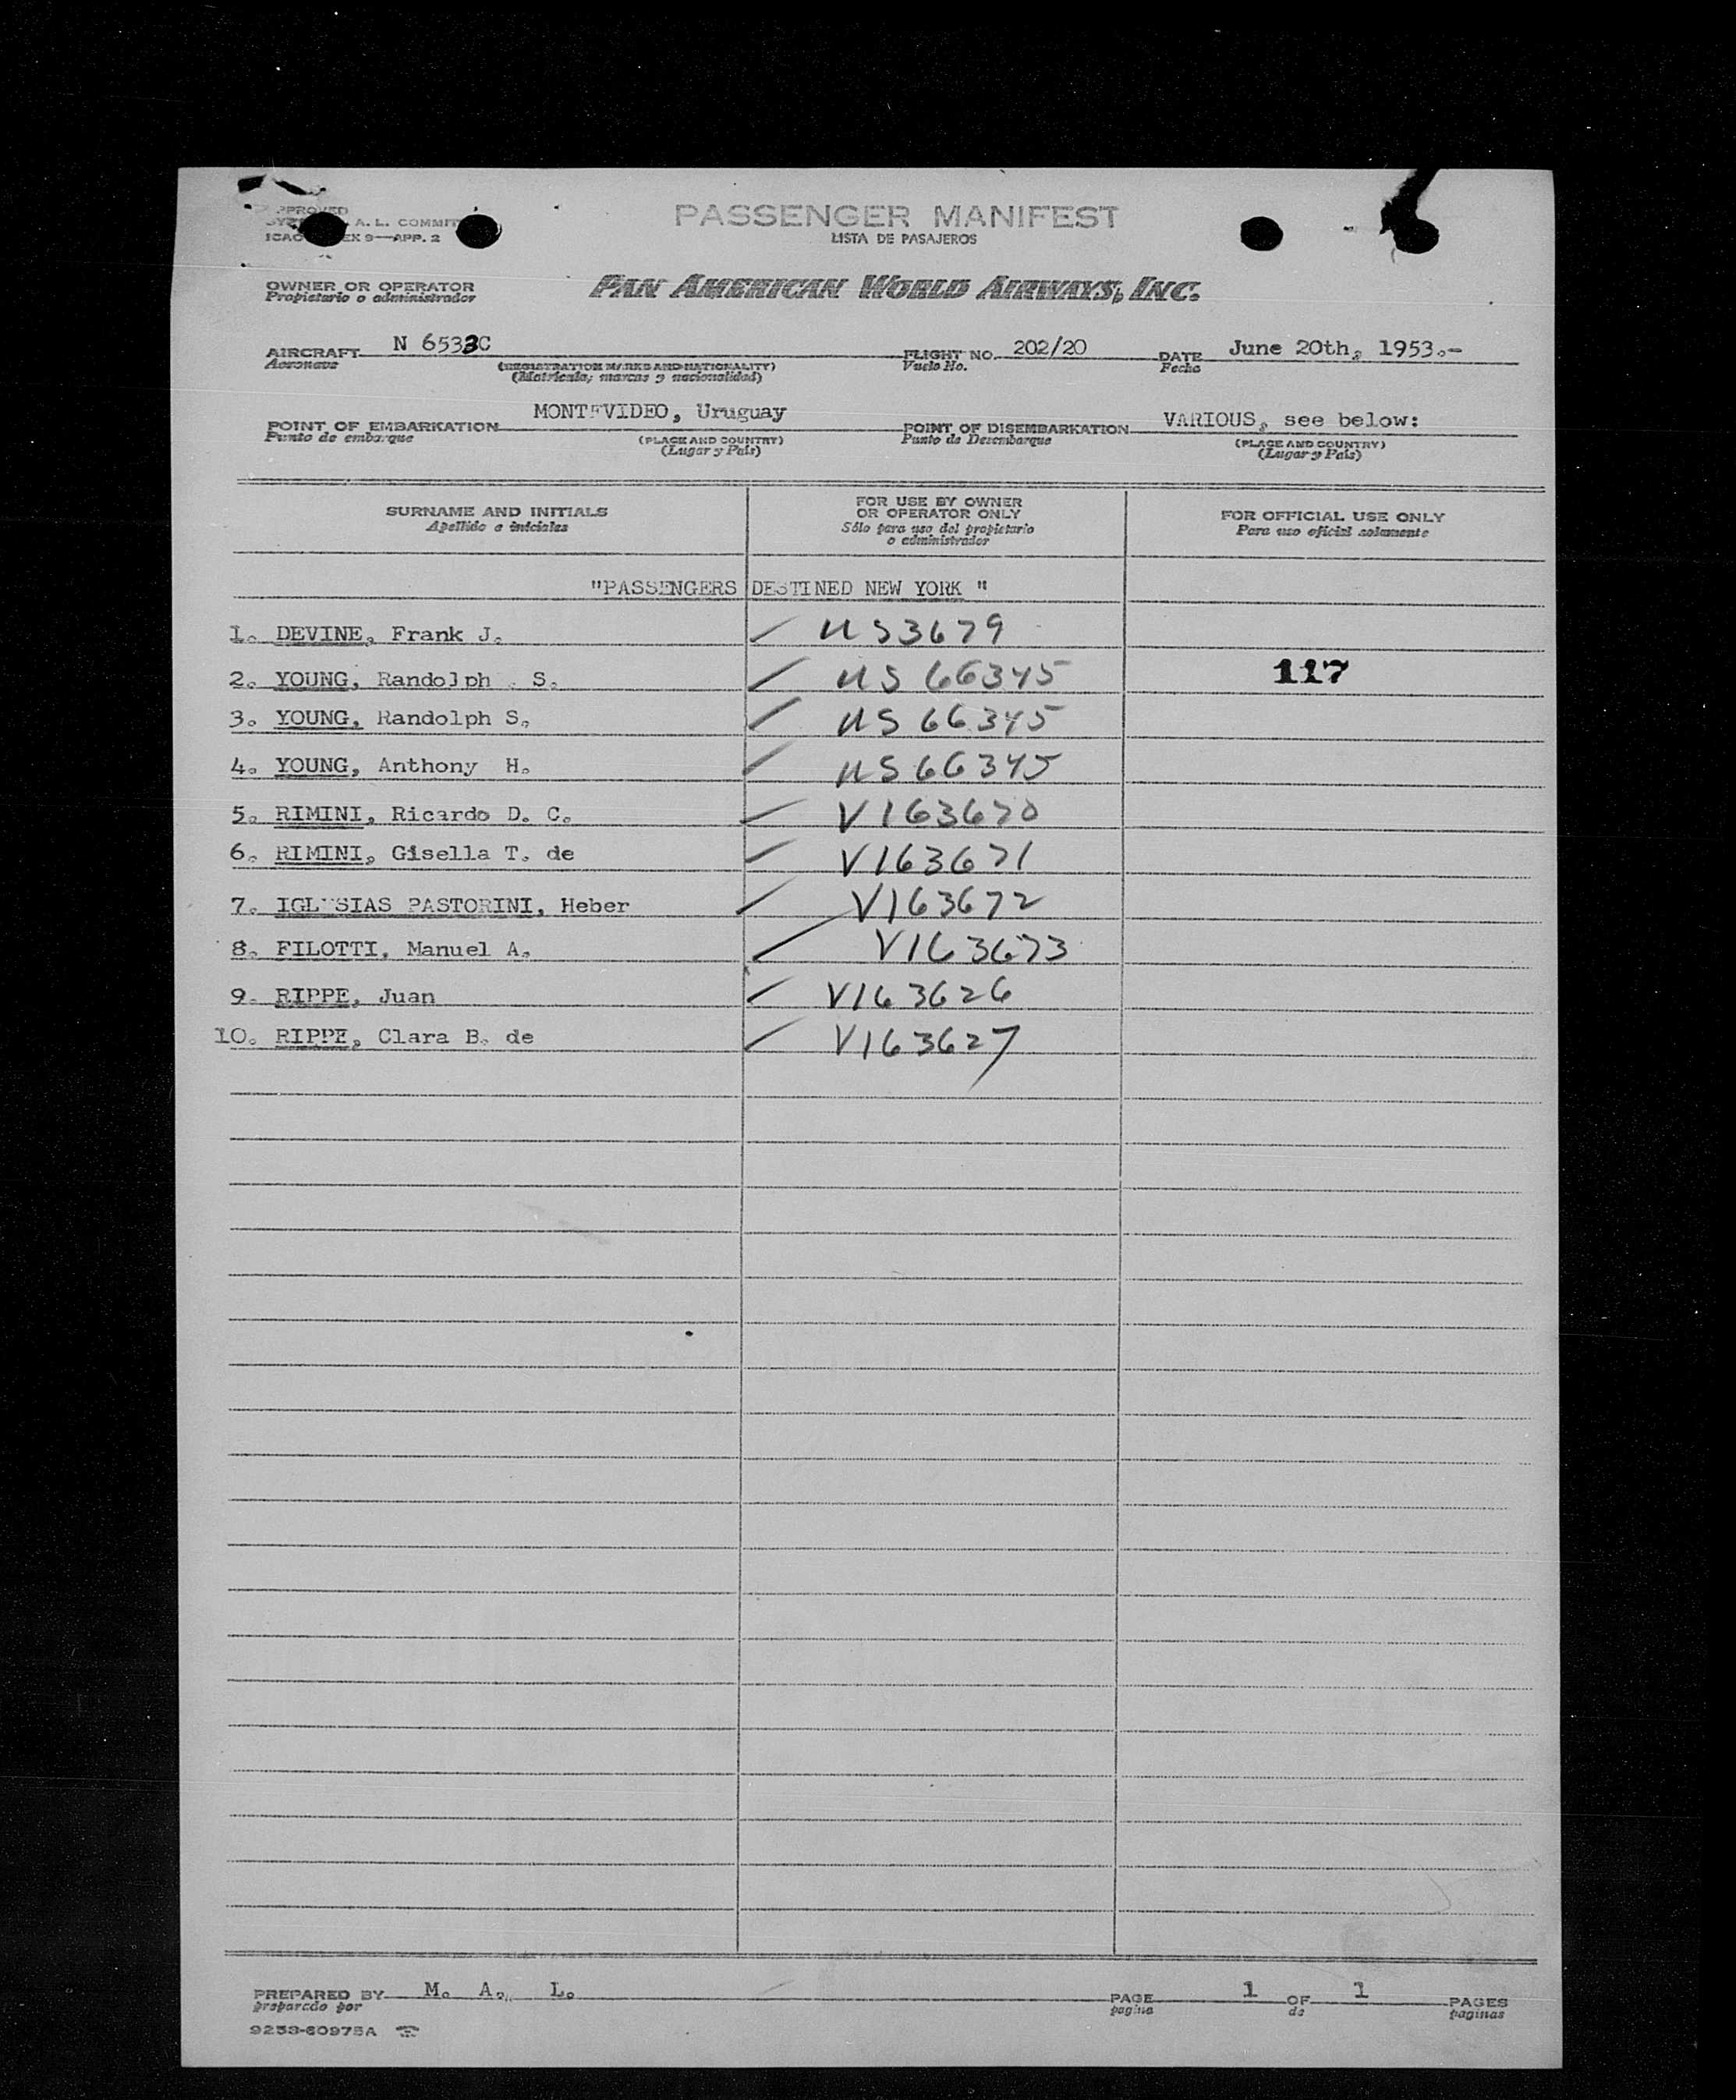 PASSENGER MANIFEST
LISTA DE PASAJEROS
APPROVED
A. L. COMMIT
ICAO EX 9—APP. 2
OWNER OR OPERATOR
Propietario o administrador
PAN AMERICAN WORLD AIRWAYS, INC.
AIRCRAFT N 6533C FLIGHT NO. 202/20 DATE June 20th, 1953.-
Aeronave (REGISTRATION MARKS AND NATIONALITY) Vuelo No. Fecha
(Matrícula, marcas y nacionalidad)
POINT OF EMBARKATION MONTEVIDEO, Uruguay POINT OF DISEMBARKATION VARIOUS, see below:
Punto de embarque (PLACE AND COUNTRY) Punto de Desembarque (PLACE AND COUNTRY)
(Lugar y País) (Lugar y País)
SURNAME AND INITIALS
Apellido e iniciales
FOR USE BY OWNER
OR OPERATOR ONLY
Sólo para uso del propietario
o administrador
FOR OFFICIAL USE ONLY
Para uso oficial solamente
"PASSENGERS DESTINED NEW YORK "
1. DEVINE, Frank J. US3679
2. YOUNG, Randolph . S. US 66345 117
3. YOUNG, Randolph S. US 66345
4. YOUNG, Anthony H. US66345
5. RIMINI, Ricardo D. C. V163670
6. RIMINI, Gisella T. de V163671
7. IGLESIAS PASTORINI, Heber V163672
8. FILOTTI, Manuel A. V163673
9. RIPPE, Juan V163626
10. RIPPE, Clara B. de V163627
PREPARED BY M. A. L. PAGE 1 OF 1 PAGES
preparado por pagina de paginas
9253-60975A